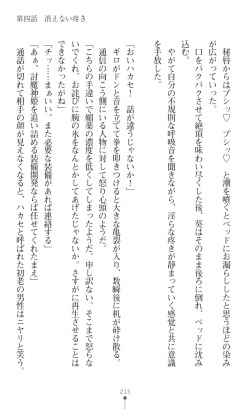 第四話　消えない疼き
秘唇からはブシッ♡　ブシッ♡　と潮を噴くとベッドにお漏らししたほどの染み
が広がっていた。
口をパクパクさせて絶頂を味わ　葵はそのまま後ろに倒れ、ベッドに沈み
やがて自分の不規則な呼吸音を聞きながら、淫らな疼きが静まっていく感覚と共に意識
を手放した。
「おいハカセ！　話が違うじゃないか！」
ギロがドンと音を立てて机を叩きつけると大きな亀裂が入り、数瞬後に机が砕け散る。
通信の向こう側にいる人物に対して怒り心頭のようだ。
「こちらの手違いで媚薬の濃度を低くしてしまったようだ。申し訳ない。そこまで怒らな
くてもこれまで、お詫びに腕の氷をなんとかしてあげたじゃないか。さすがに再生させることは
できなかったがね」
「チッ……まあいい。また必要な装備があれば連絡する」
「ああ、討魔神姫を追い詰める装備開発ならば任せてくれたまえ」
通話が切れて相手の顔が見えなくなると、ハカセと呼ばれた初老の男性はニヤリと笑う。
213